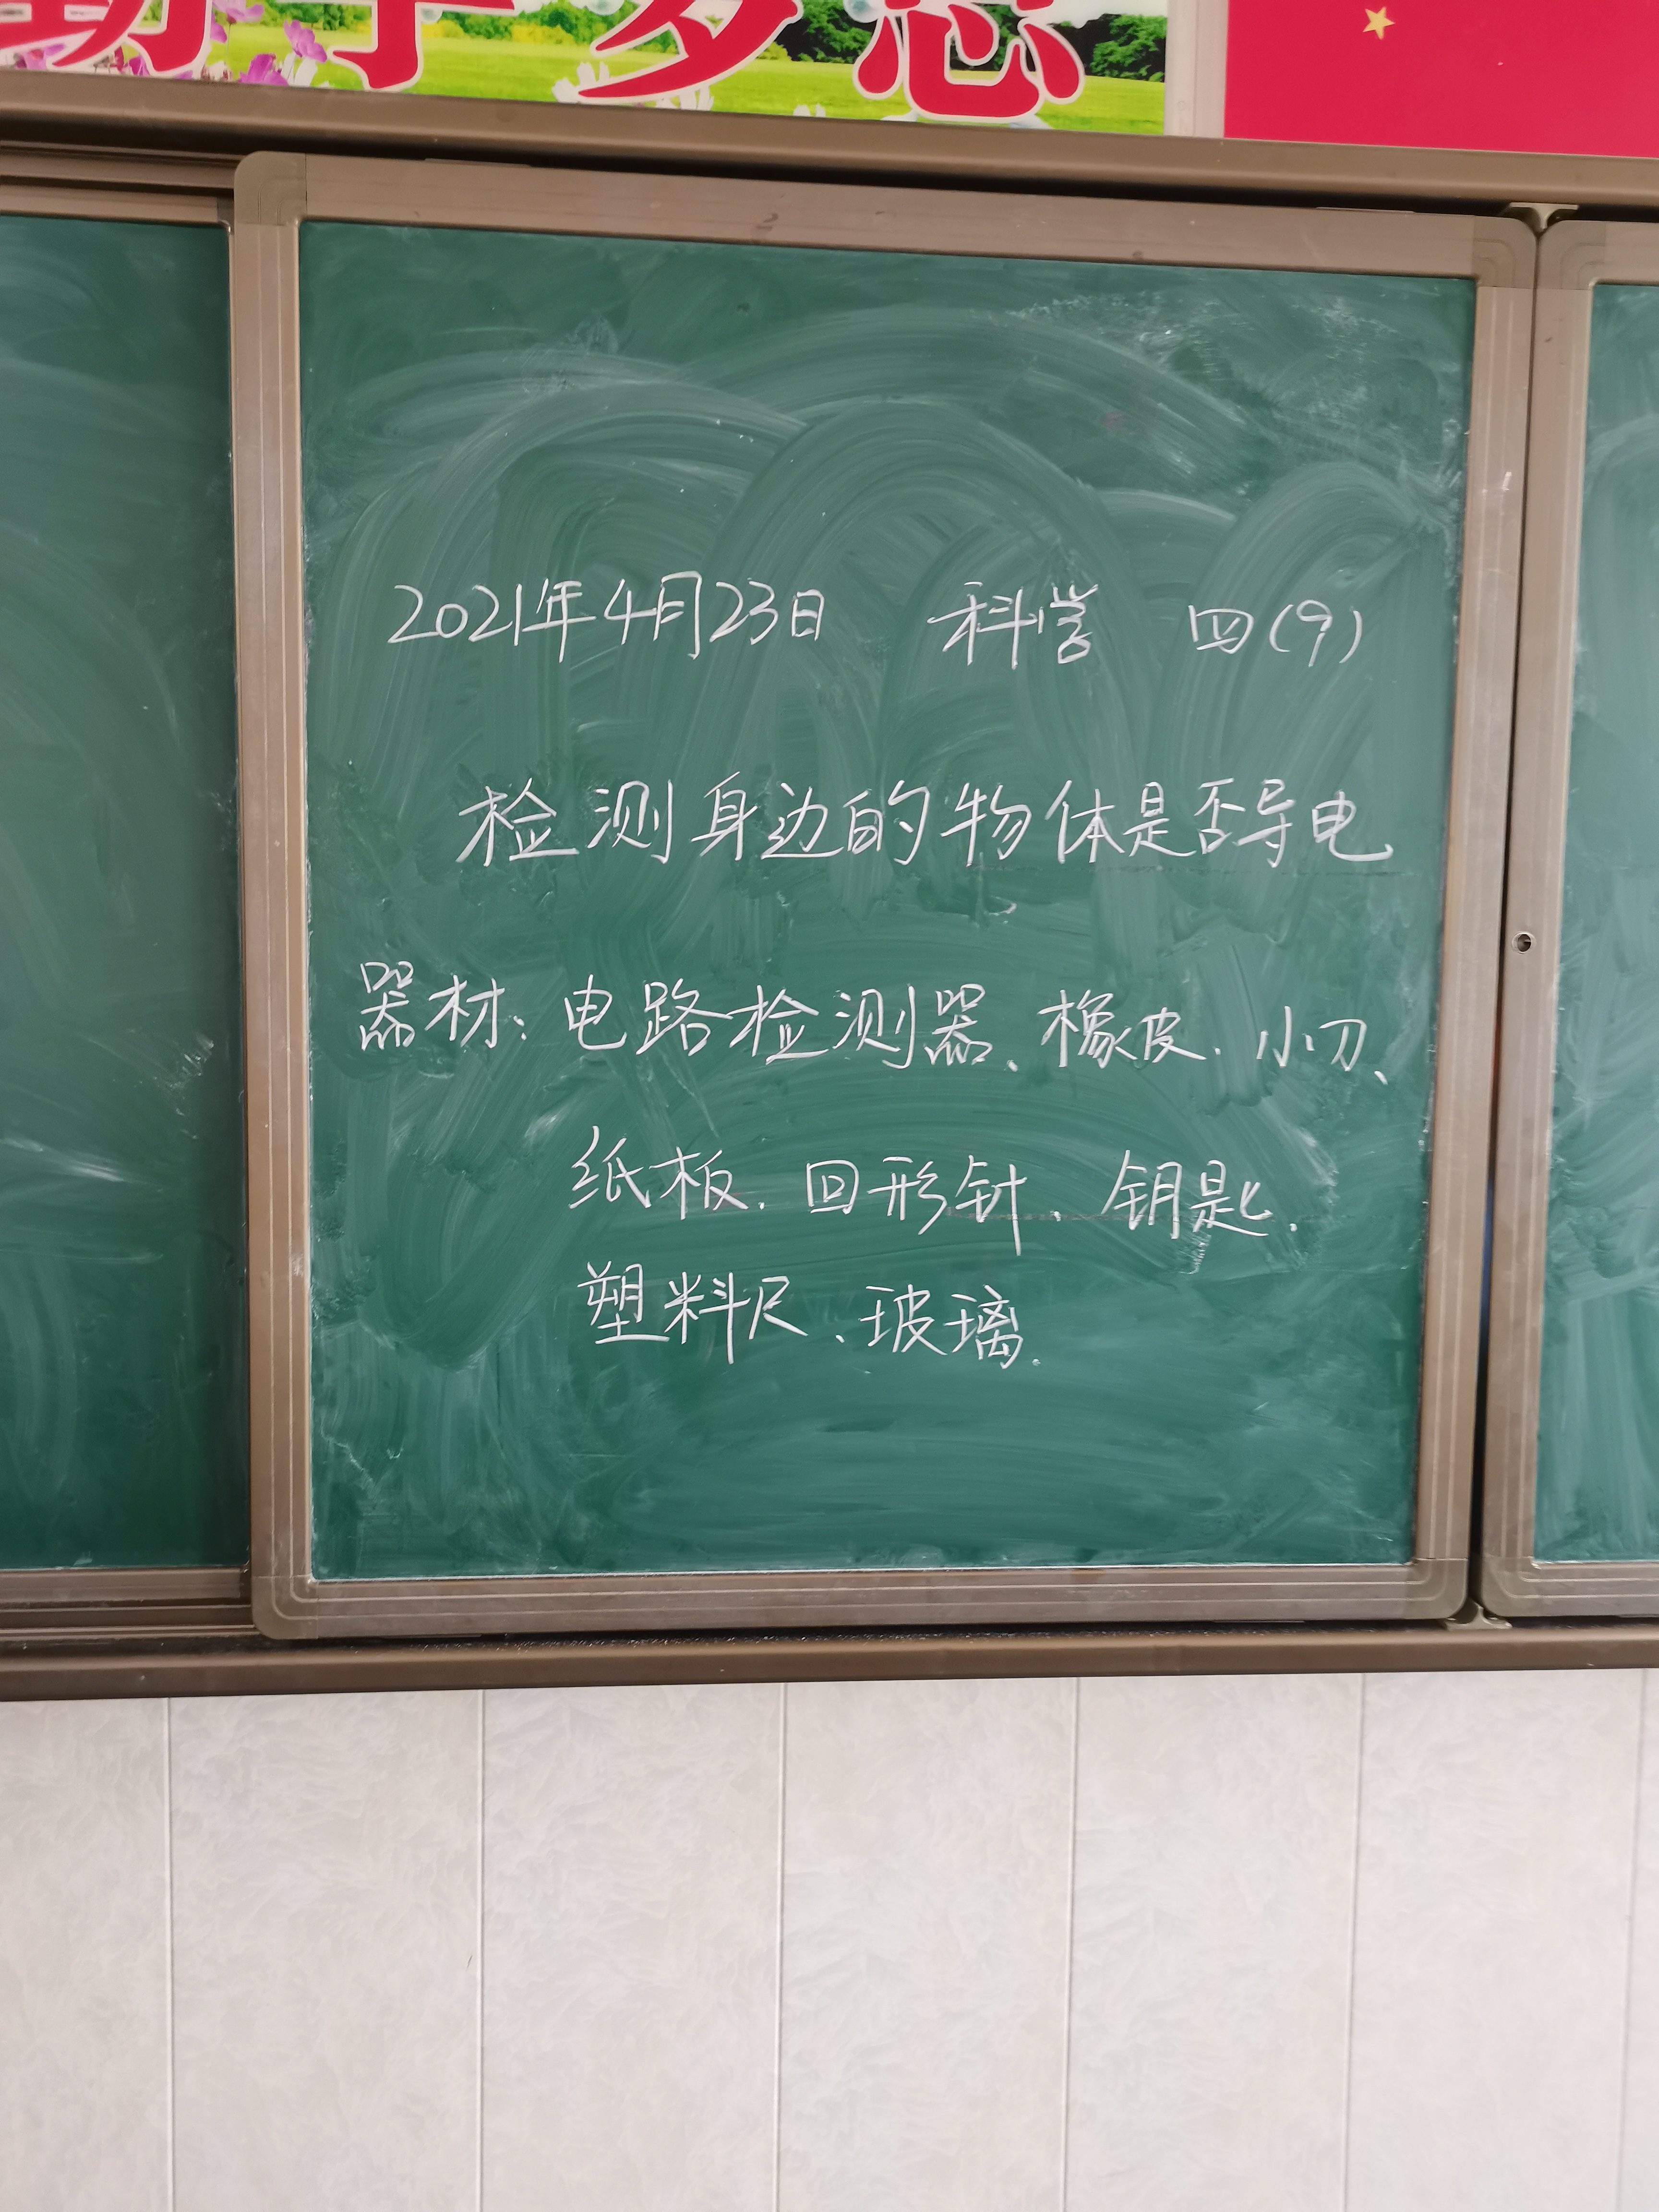 勤学梦想
2021年4月23日 科学 四(9)
检测身边的物体是否导电
器材：电路检测器、橡皮、小刀、
纸板、回形针、钥匙、
塑料尺、玻璃.